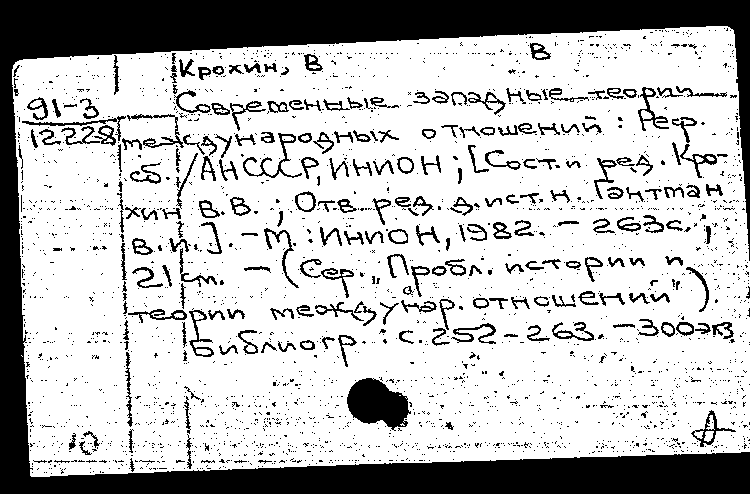 Крохин, В В
91-3 Современные западные теории
12228 международных отношений : Реф.
сб. / АН СССР, ИНИОН ; [Сост. и ред. Кро-
хин В.В. ; Отв. ред. д.ист.н. Гантман
В.И.]. - М. : ИНИОН, 1982. - 263с. ;
21 см. - (Сер. "Пробл. истории и
теории междунар. отношений").
Библиогр. : с. 252-263. - 300экз
10